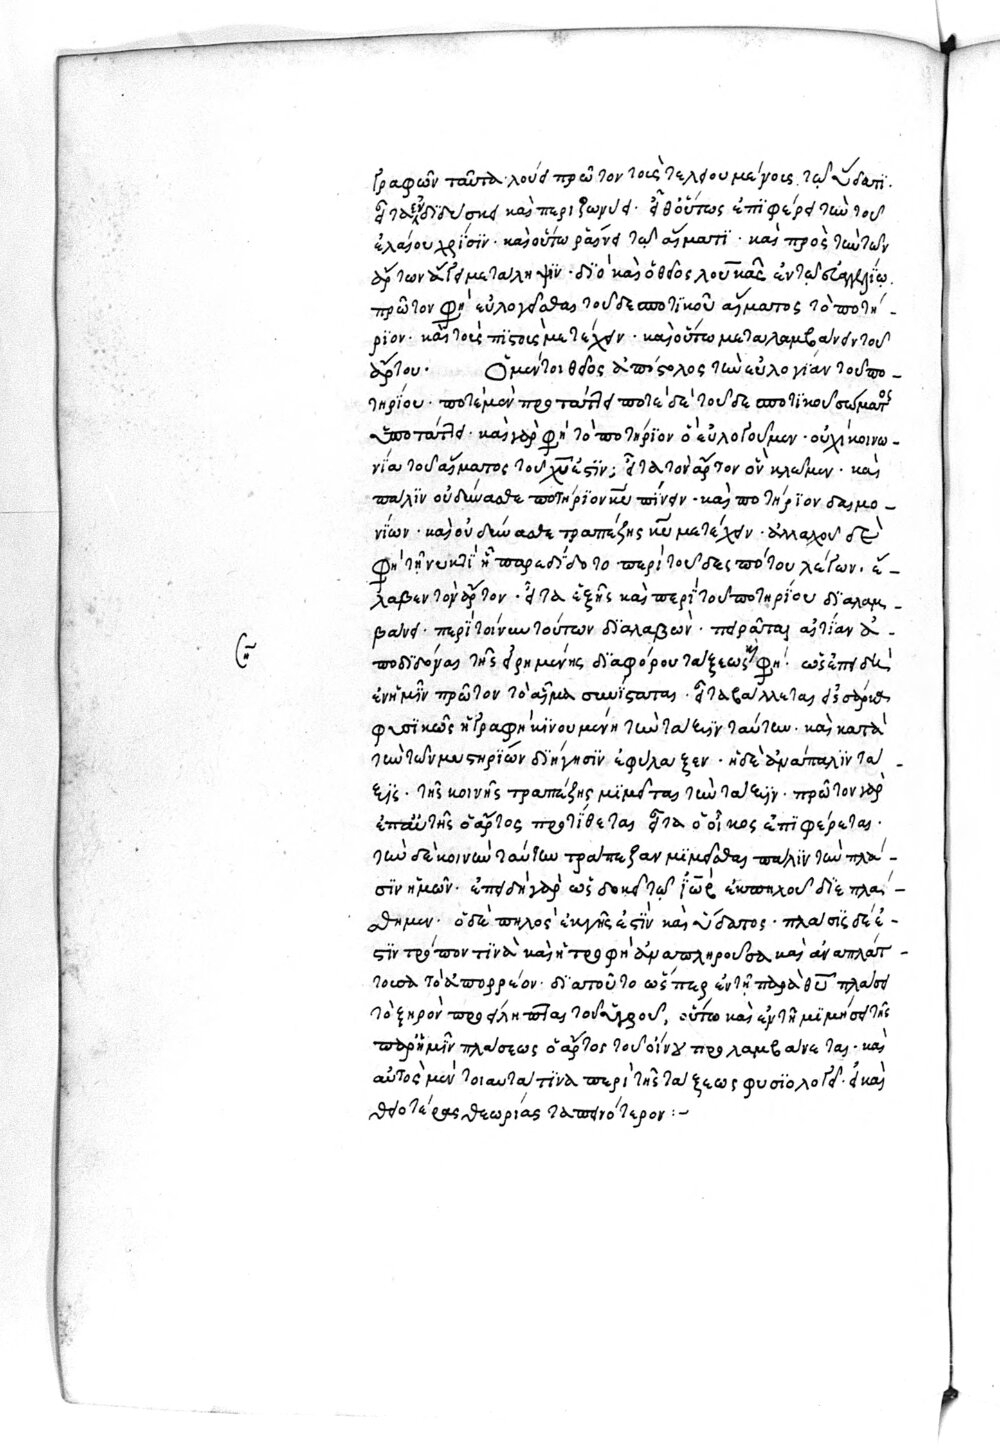 γραφῶν ταῦτα· λούει πρῶτον τοὺς τελειουμένους τῷ ὕδατι·
εἶτα ἐνδιδύσκει καὶ περιζωννύει· εἶθ' οὕτως ἐπιφέρει τὴν τοῦ
ἐλαίου χρίσιν· καὶ οὕτω ῥαίνει τῷ αἵματι· καὶ πρὸς τὴν τῶν
ἄρτων ἄγει μετάληψιν· διὸ καὶ ὁ θεῖος λουκᾶς ἐν τῷ εὐαγγελίῳ
πρῶτον φη εὐλογεῖσθαι τοῦ δεσποτικοῦ αἵματος τὸ ποτή-
ριον· καὶ τοὺς πιστοὺς μετέχειν· καὶ οὕτω μεταλαμβάνειν τοῦ
ἄρτου· Ὁ μέντοι θεῖος ἀπόστολος τὴν εὐλογίαν τοῦ πο-
τηρίου· ποτὲ μὲν προτάττει ποτὲ δὲ τοῦ δεσποτικοῦ σώματος
ὑποτάττει· καὶ γάρ φη τὸ ποτήριον ὃ εὐλογοῦμεν· οὐχὶ κοινω-
νία τοῦ αἵματος τοῦ χυ ἐστιν; εἶτα τὸν ἄρτον ὃν κλῶμεν· καὶ
πάλιν οὐ δύνασθε ποτήριον κυ πίνειν· καὶ ποτήριον δαιμο-
νίων· καὶ οὐ δύνασθε τραπέζης κυ μετέχειν· ἀλλαχοῦ δὲ
φη τῇ νυκτὶ ᾗ παρεδίδοτο περὶ τοῦ δεσπότου λέγων· ἔ-
λαβεν τὸν ἄρτον· εἶτα ἑξῆς καὶ περὶ τοῦ ποτηρίου διαλαμ-
βάνει· περὶ τοίνυν τούτων διαλαβὼν· πειρᾶται αἰτίαν ἀ-
ποδιδόναι τῆς εἰρημένης διαφόρου τάξεως φη· ὡς ἐπειδὴ
ἐν ἡμῖν πρῶτον τὸ αἷμα συνίσταται· εἶτα βάλλεται εἰς σάρκα
φυσικῶς ἡ γραφὴ κινουμένη τὴν τάξιν ταύτην· καὶ κατὰ
τὴν τῶν μυστηρίων διήγησιν ἐφύλαξεν· ἡ δὲ ἀνάπαλιν τά-
ξις· τῆς κοινῆς τραπέζης μιμεῖται τὴν τάξιν· πρῶτον γὰρ
ἐπ' αὐτῆς ὁ ἄρτος προτίθεται εἶτα ὁ οἶνος ἐπιφέρεται·
τὴν δὲ κοινὴν ταύτην τράπεζαν μιμεῖσθαι πάλιν τὴν πλά-
σιν ἡμῶν· ἐπειδὴ γὰρ ὡς δοκεῖ τῷ ἰὼβ ἐκ πηλοῦ διεπλά-
σθημεν· ὁ δὲ πηλὸς ἐκ γῆς ἐστιν καὶ ὕδατος· πλάσις δέ ἐ-
στιν τρόπον τινὰ καὶ ἡ τροφὴ ἀναπληροῦσα καὶ ἀναπλάτ-
τουσα τὸ ἀπορρέον· διατοῦτο ὥσπερ ἐν τῇ παρὰ θυ πλάσει
τὸ ξηρὸν προείληπται τοῦ ὑγροῦ, οὕτω καὶ ἐν τῇ μιμήσει τῆς
παρ' ἡμῖν πλάσεως ὁ ἄρτος τοῦ οἴνου προλαμβάνεται· καὶ
αὐτὸς μὲν τοιαῦτά τινα περὶ τῆς τάξεως φυσιολογεῖ· εἰ καὶ
θειοτέρας θεωρίας ταπεινότερον:~